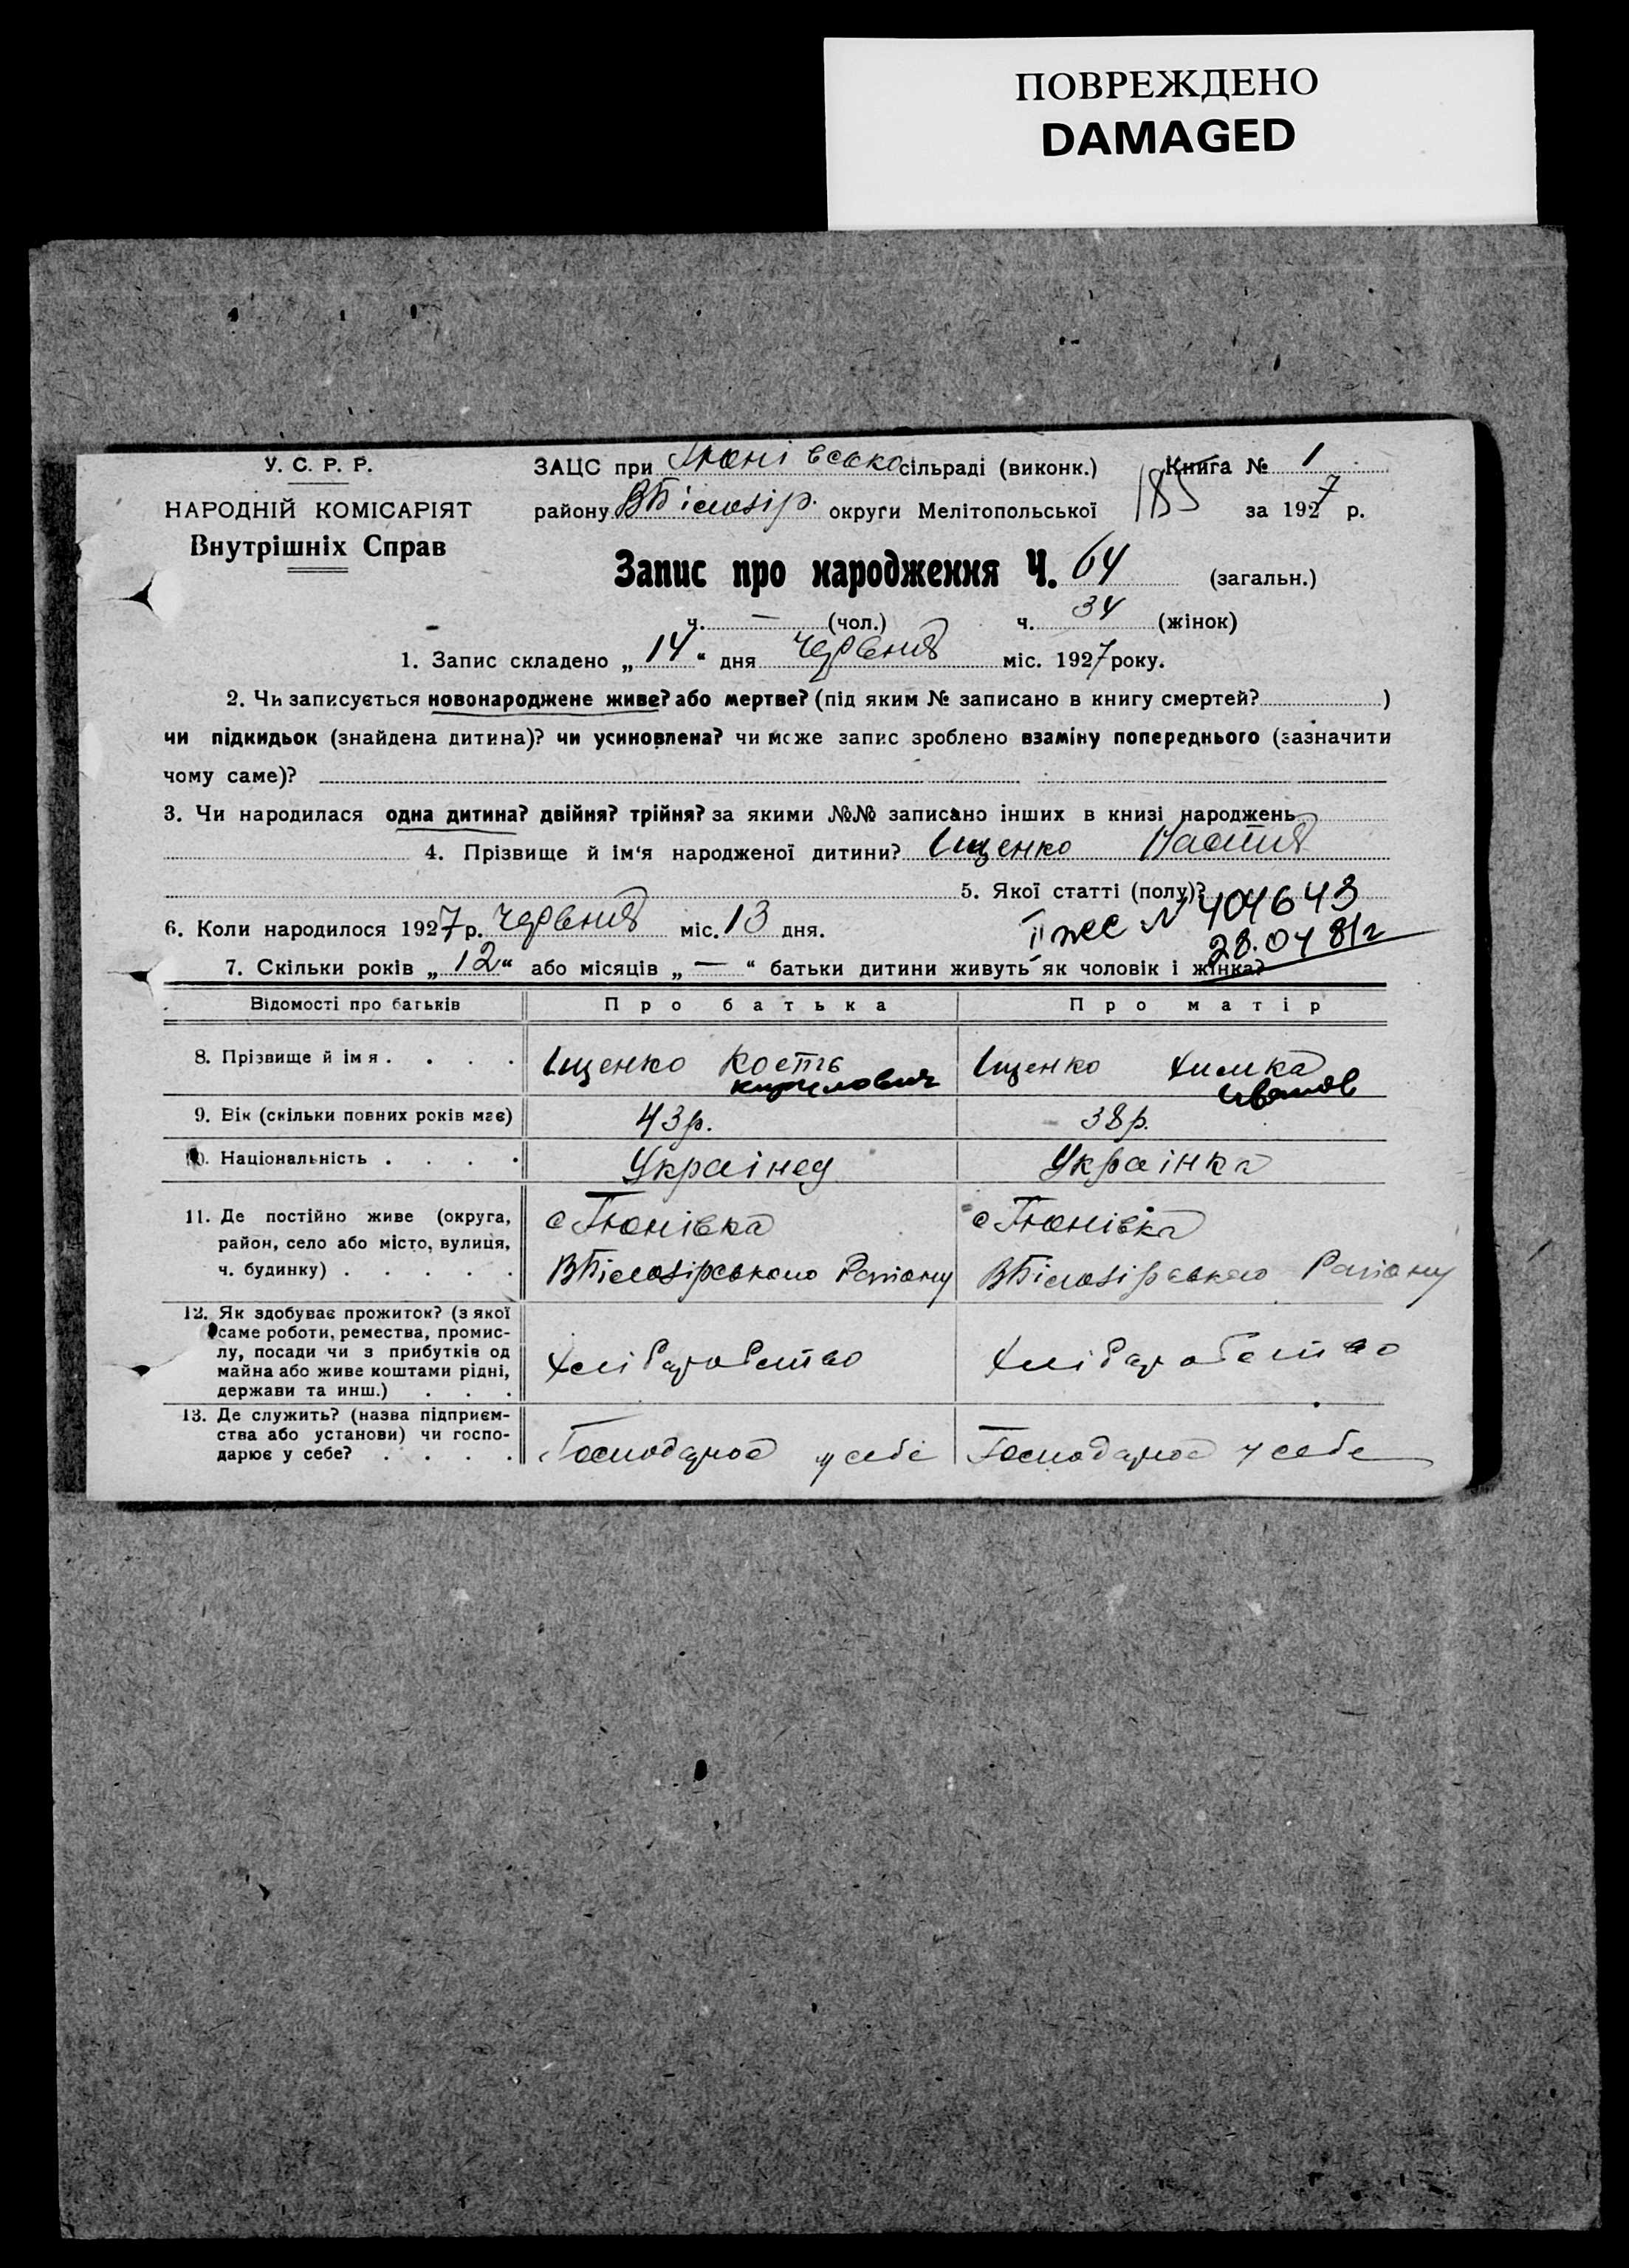 ПОВРЕЖДЕНО
DAMAGED
У. С. Р. Р.
НАРОДНІЙ КОМІСАРІЯТ
Внутрішніх Справ
ЗАЦС при Тюнівсько сільраді (виконк.) Книга № 1
району ВБілозір. округи Мелітопольської 185 за 1927 р.
Запис про народження Ч. 64 (загальн.)
ч. — (чол.) ч. 34 (жінок)
1. Запис складено „14“ дня червня міс. 1927 року.
2. Чи записується новонароджене живе? або мертве? (під яким № записано в книгу смертей? )
чи підкидьок (знайдена дитина)? чи усиновлена? чи може запис зроблено взаміну попереднього (зазначити
чому саме)?
3. Чи народилася одна дитина? двійня? трійня? за якими №№ записано інших в книзі народжень
4. Прізвище й ім‘я народженої дитини? Іщенко Настя
5. Якої статті (полу)?
ІІ жс № 404643
28.04 81г
6. Коли народилося 1927 р. червня міс. 13 дня.
7. Скільки років „12“ або місяців „—“ батьки дитини живуть як чоловік і жінка?
Відомості про батьків Про батька Про матір
8. Прізвище й імя . . . . Іщенко Кость Іщенко Химка
Кирилович Иванов
9. Вік (скільки повних років має) 43р. 38р.
10. Національність . . . . Українец Українка
11. Де постійно живе (округа, район, село або місто, вулиця, ч. будинку) . . . . .
с Тюнівка
ВБілозірського Району
с Тюнівка
ВБілозірського Району
12. Як здобуває прожиток? (з якої
саме роботи, ремества, промис-
лу, посади чи з прибутків од
майна або живе коштами рідні,
держави та инш.) . . .
Хліборобство Хліборобство
13. Де служить? (назва підприєм-
ства або установи) чи госпо-
дарює у себе? . . . .
Господарює у себе Господарює у себе